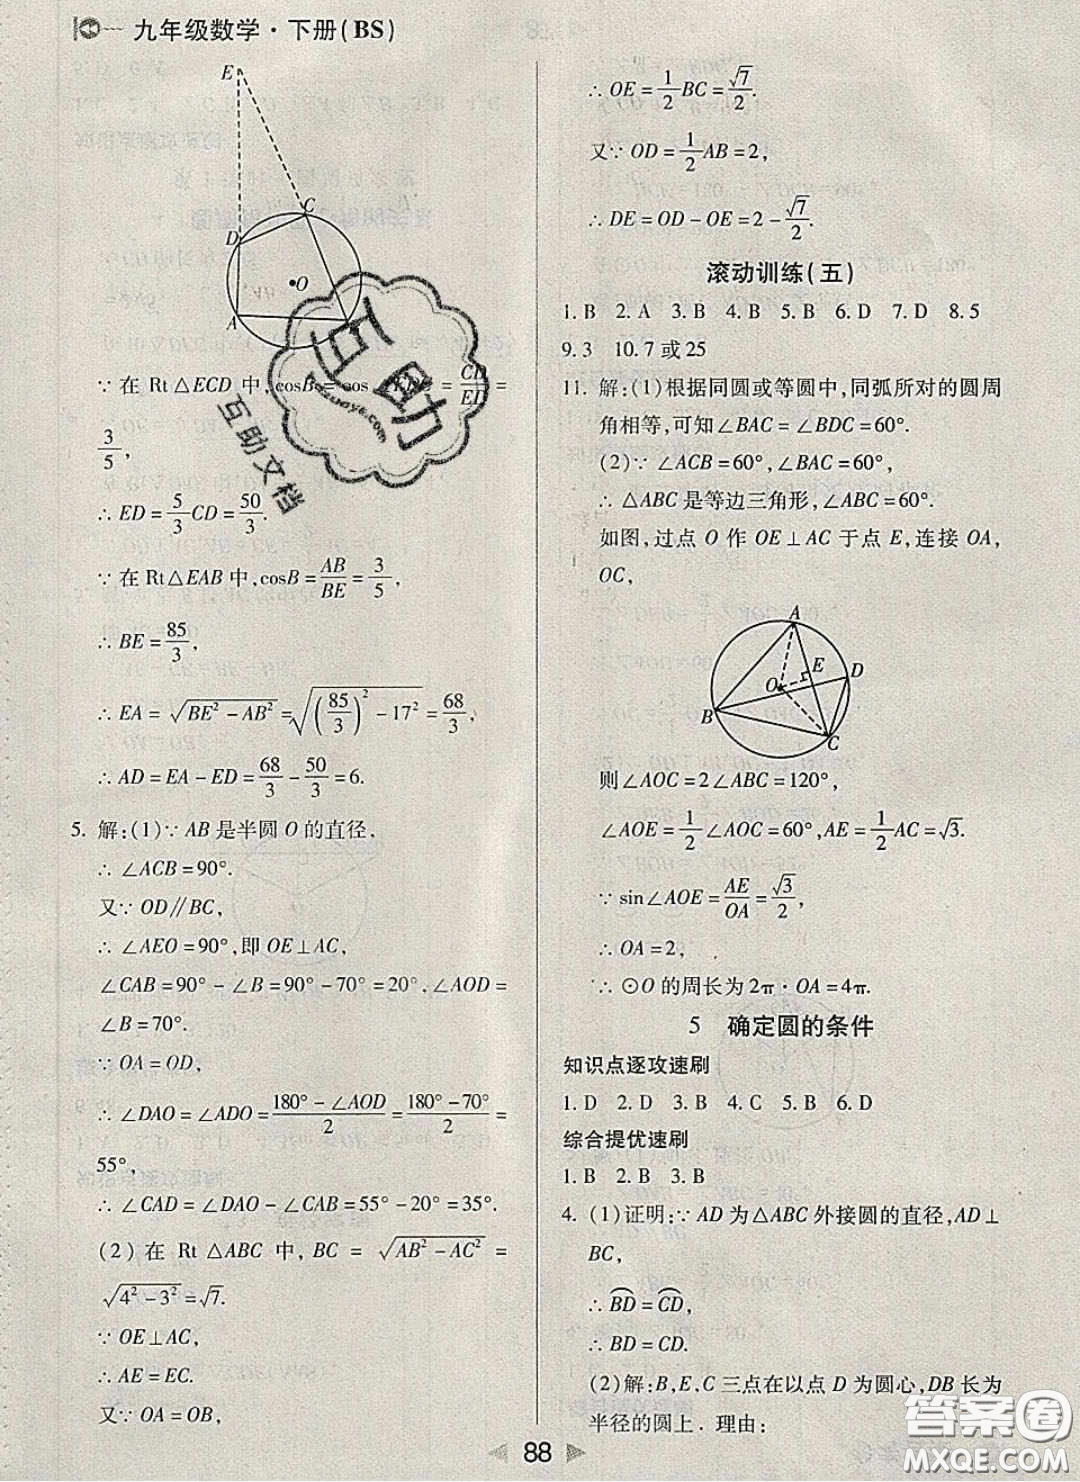 九年级数学·下册(BS)
E
C
D
O
A
∵在 Rt△ECD 中,cosB=cos = CD/ED =
3/5,
∴ED=5/3CD=50/3.
∵在 Rt△EAB 中,cosB=AB/BE=3/5,
∴BE=85/3,
∴EA=√(BE²-AB²)=√((85/3)²-17²)=68/3,
∴AD=EA-ED=68/3-50/3=6.
5. 解:(1)∵AB 是半圆 O 的直径,
∴∠ACB=90°.
又∵OD∥BC,
∴∠AEO=90°,即 OE⊥AC,
∠CAB=90°-∠B=90°-70°=20°,∠AOD=
∠B=70°.
∵OA=OD,
∴∠DAO=∠ADO=(180°-∠AOD)/2=(180°-70°)/2=
55°,
∴∠CAD=∠DAO-∠CAB=55°-20°=35°.
(2)在 Rt△ABC 中,BC=√(AB²-AC²)=
√(4²-3²)=√7.
∵OE⊥AC,
∴AE=EC.
又∵OA=OB,
∴OE=1/2BC=√7/2.
又∵OD=1/2AB=2,
∴DE=OD-OE=2-√7/2.
滚动训练(五)
1. B 2. A 3. B 4. B 5. B 6. D 7. D 8. 5
9. 3 10. 7 或 25
11. 解:(1)根据同圆或等圆中,同弧所对的圆周
角相等,可知∠BAC=∠BDC=60°.
(2)∵∠ACB=60°,∠BAC=60°,
∴△ABC 是等边三角形,∠ABC=60°.
如图,过点 O 作 OE⊥AC 于点 E,连接 OA,
OC,
A
E
D
O
B
C
则∠AOC=2∠ABC=120°,
∠AOE=1/2∠AOC=60°,AE=1/2AC=√3.
∵sin∠AOE=AE/OA=√3/2,
∴OA=2,
∴⊙O 的周长为 2π·OA=4π.
5 确定圆的条件
知识点逐攻速刷
1. D 2. D 3. B 4. C 5. B 6. D
综合提优速刷
1. B 2. B 3. B
4. (1)证明:∵AD 为△ABC 外接圆的直径,AD⊥
BC,
∴⌒BD=⌒CD,
∴BD=CD.
(2)解:B,E,C 三点在以点 D 为圆心,DB 长为
半径的圆上. 理由:
88
互助
互助文档
答案圈
MXQE.COM